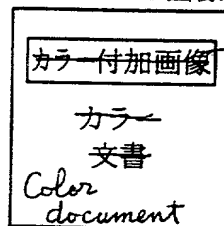 カラー付加画像
カラー
文書
Color
document